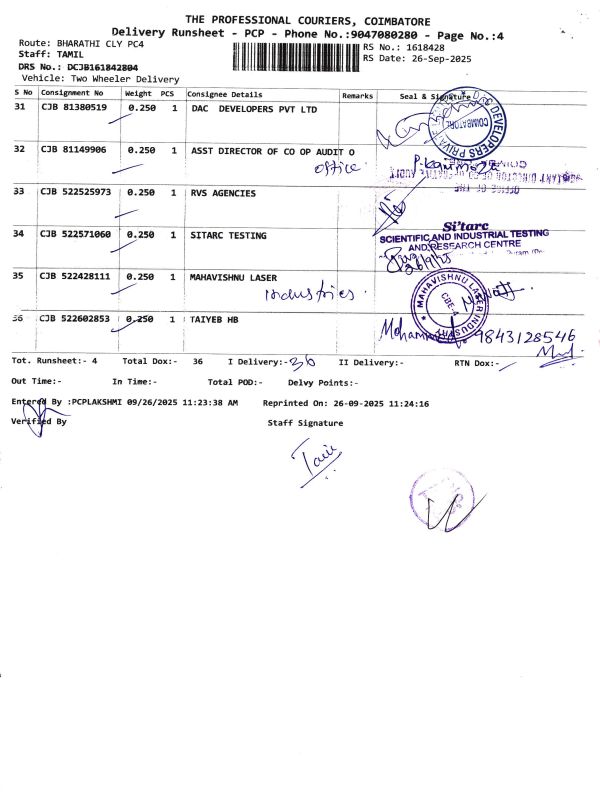 THE PROFESSIONAL COURIERS, COIMBATORE
Delivery Runsheet - PCP - Phone No.:9047080280 - Page No.:4
Route: BHARATHI CLY PC4
RS No.: 1618428
Staff: TAMIL
RS Date: 26-Sep-2025
DRS No.: DCJB161842804
Vehicle: Two Wheeler Delivery
S No Consignment No Weight PCS Consignee Details Remarks Seal & Signature
31 CJB 81380519 0.250 1 DAC DEVELOPERS PVT LTD
COIMBATORE
32 CJB 81149906 0.250 1 ASST DIRECTOR OF CO OP AUDIT O
office
33 CJB 522525973 0.250 1 RVS AGENCIES
OFFICE OF THE
34 CJB 522571060 0.250 1 SITARC TESTING
Si'tarc
SCIENTIFIC AND INDUSTRIAL TESTING
AND RESEARCH CENTRE
26/9/25
35 CJB 522428111 0.250 1 MAHAVISHNU LASER
industries.
MAHAVISHNU LASER INDUSTRY
CBE-4
36 CJB 522602853 0.250 1 TAIYEB HB
9843128546
Tot. Runsheet:- 4 Total Dox:- 36 I Delivery:- 36 II Delivery:- RTN Dox:-
Out Time:- In Time:- Total POD:- Delvy Points:-
Entered By :PCPLAKSHMI 09/26/2025 11:23:38 AM Reprinted On: 26-09-2025 11:24:16
Verified By Staff Signature